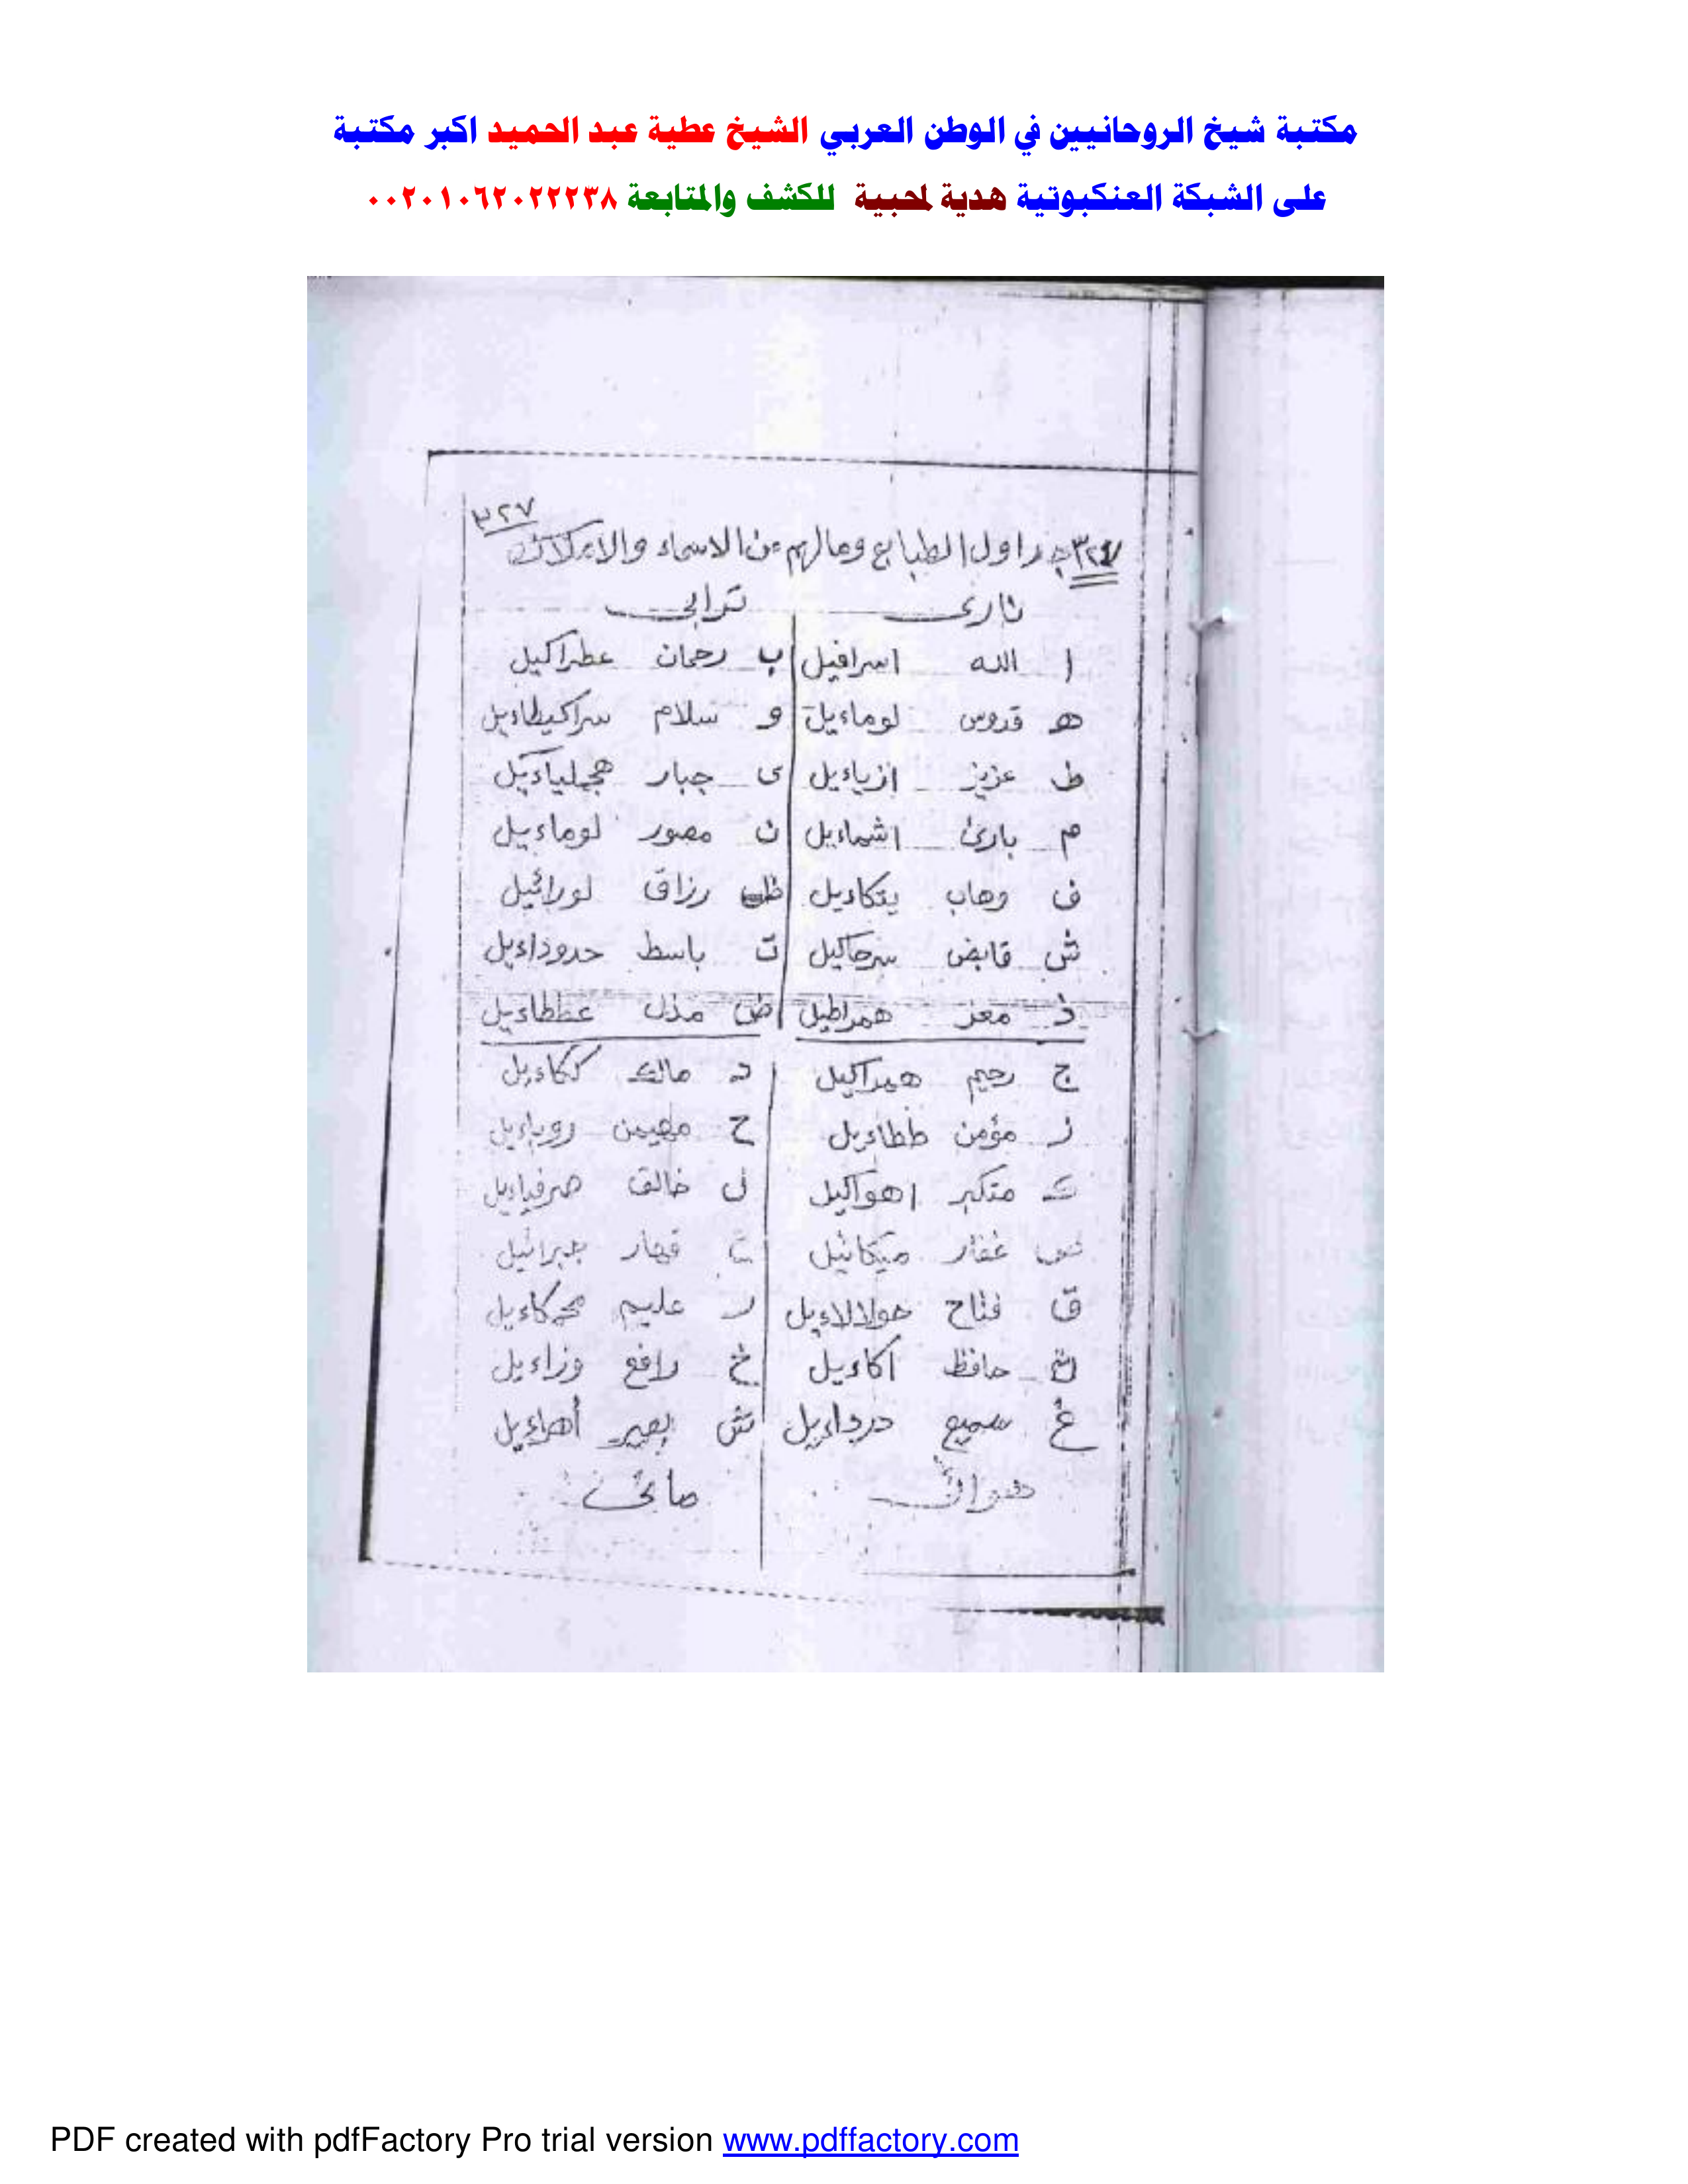 مكتبة شيخ الروحانيين في الوطن العربي الشيخ عطية عبد الحميد اكبر مكتبة
على الشبكة العنكبوتية هدية لمحبية للكشف والمتابعة ٠٠٢٠١٠٦٢٠٢٢٢٣٨
٣٢٧
جداول الطبايع ومالهم من الاسماء والاملاك
نارى ترابى
ا الله اسرافيل ب رحمان عطراكيل
ھ قدوس لوماءيل و سلام سراكيطاءيل
ط عزيز ازياءيل ى جبار
م بارئ اشماءيل ن مصور لوماءيل
ف وهاب يتكاءيل ظ رزاق لورائيل
ش قابض سرحاكيل ت باسط حدوزاءيل
ذ معز همراطيل ض مذل عططاءيل
ج رحيم هبراكيل د مالك ككاءيل
ز مؤمن ططاءيل ح مهيمن روباءيل
ك متكبر اهواكيل ل خالق صرفياءيل
س غفار ميكائيل ع قهار جبرائيل
ق فتاح هولالاءيل ر عليم محكاءيل
ث حافظ اكاءيل خ رافع وزاءيل
غ سميع درداءيل ش بصير أهراءيل
هوائى مائى
PDF created with pdfFactory Pro trial version www.pdffactory.com